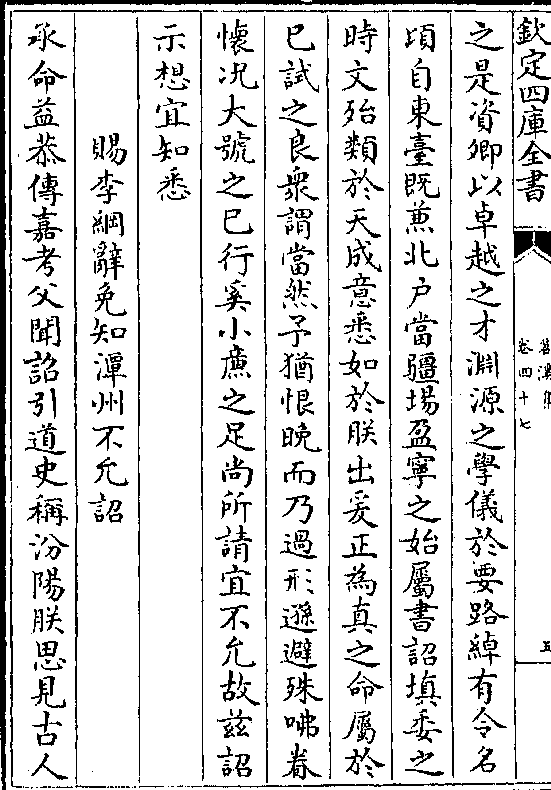 欽定四庫全書
卷四十七
五
之是資卿以卓越之才淵源之學儀於要路綽有令名
頃自東臺既兼北户當疆埸盈寧之始屬書詔填委之
時文殆類於天成意悉如於朕出爰正為真之命屬於
已試之良衆謂當然予猶恨晚而乃過形遜避殊咈眷
懷况大號之已行奚小亷之足尚所請宜不允故兹詔
示想宜知悉
賜李綱辭免知潭州不允詔
承命益恭傳嘉考父聞詔引道史稱汾陽朕思見古人